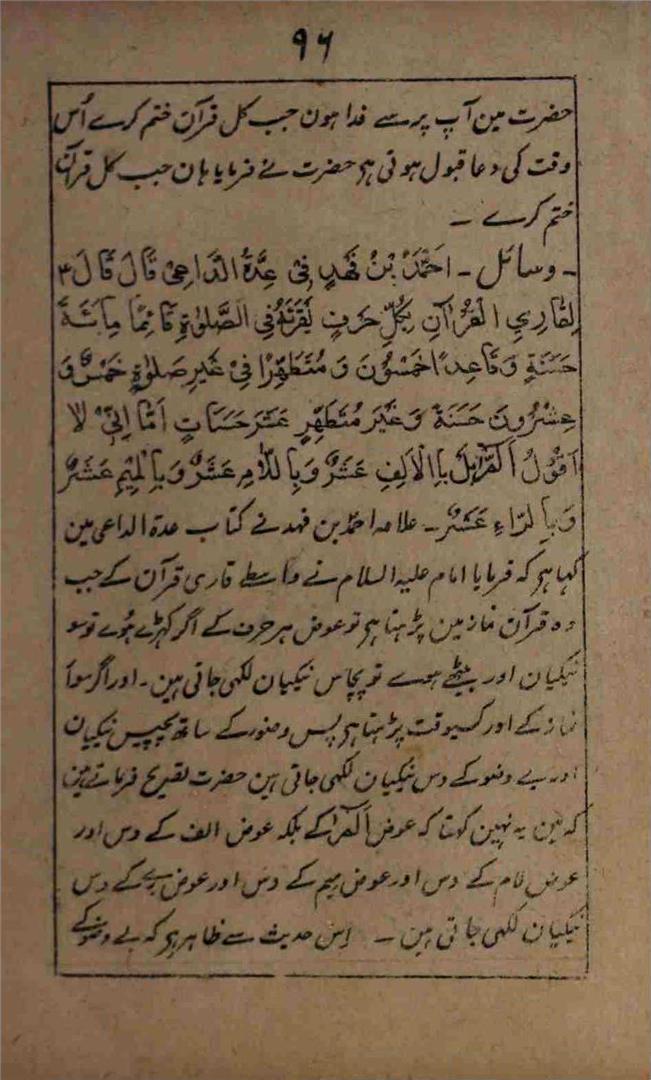 ۹۶
حضرت مین آپ پر سے فدا ہون جب کل قرآن ختم کرے اُس
وقت کی دعا قبول ہوتی ہی حضرت نے فرمایا ہان جب کل قرآن
ختم کرے ۔
۔ وسائل ۔ احمَدُ بْنُ فَهْدٍ فِیْ عِدَّةُ الدَّاعِیْ قَالَ قَالَ ۳
لِقَارِيِ الْقُرْآنِ بِکُلِّ حَرْفٍ یَقْرَئُهُ فِی الصَّلٰوةِ قَائِمًا مِائَةَ
حَسَنَةٍ وَقَاعِدًا خَمْسُوْنَ وَ مُتَطَهِّرًا فِیْ غَیْرِ صَلٰوةٍ خَمْسٌ وَ
عِشْرُوْنَ حَسَنَةً وَ غَیْرَ مُتَطَهِّرٍ عَشَرَ حَسَنَاتٍ اَمَّا اِنِّیْ لَا
اَقُوْلُ الٓمٓرٰ بَلْ بِالْاَلِفِ عَشَرٌ وَ بِاللَّامِ عَشَرٌ وَ بِالْمِیْمِ عَشَرٌ
وَ بِالرَّاءِ عَشَرٌ۔ علامہ احمد بن فہد نے کتاب عدۃ الداعی مین
کہا ہی کہ فرمایا امام علیہ السلام نے واسطے قاری قرآن کے جب
وہ قرآن نماز مین پڑہتا ہی تو عوض ہر حرف کے اگر کہڑے ہُوے تو سو
نیکیان اور بیٹھے ہوے تو پچاس نیکیان لکہی جاتی ہین ۔ اور اگر سوا
نماز کے اور کسیوقت پڑہتا ہی پس وضو کے ساتھ پچیس نیکیان
اور بے وضو کے دس نیکیان لکہی جاتی ہین حضرت تصریح فرماتے ہین
کہ مین یہ نہین کہتا کہ عوض الٓمٓرٰ کے بلکہ عوض الف کے دس اور
عوض لام کے دس اور عوض میم کے دس اور عوض رے کے دس
نیکیان لکہی جاتی ہین ۔ اِس حدیث سے ظاہر ہی کہ بے وضو کے